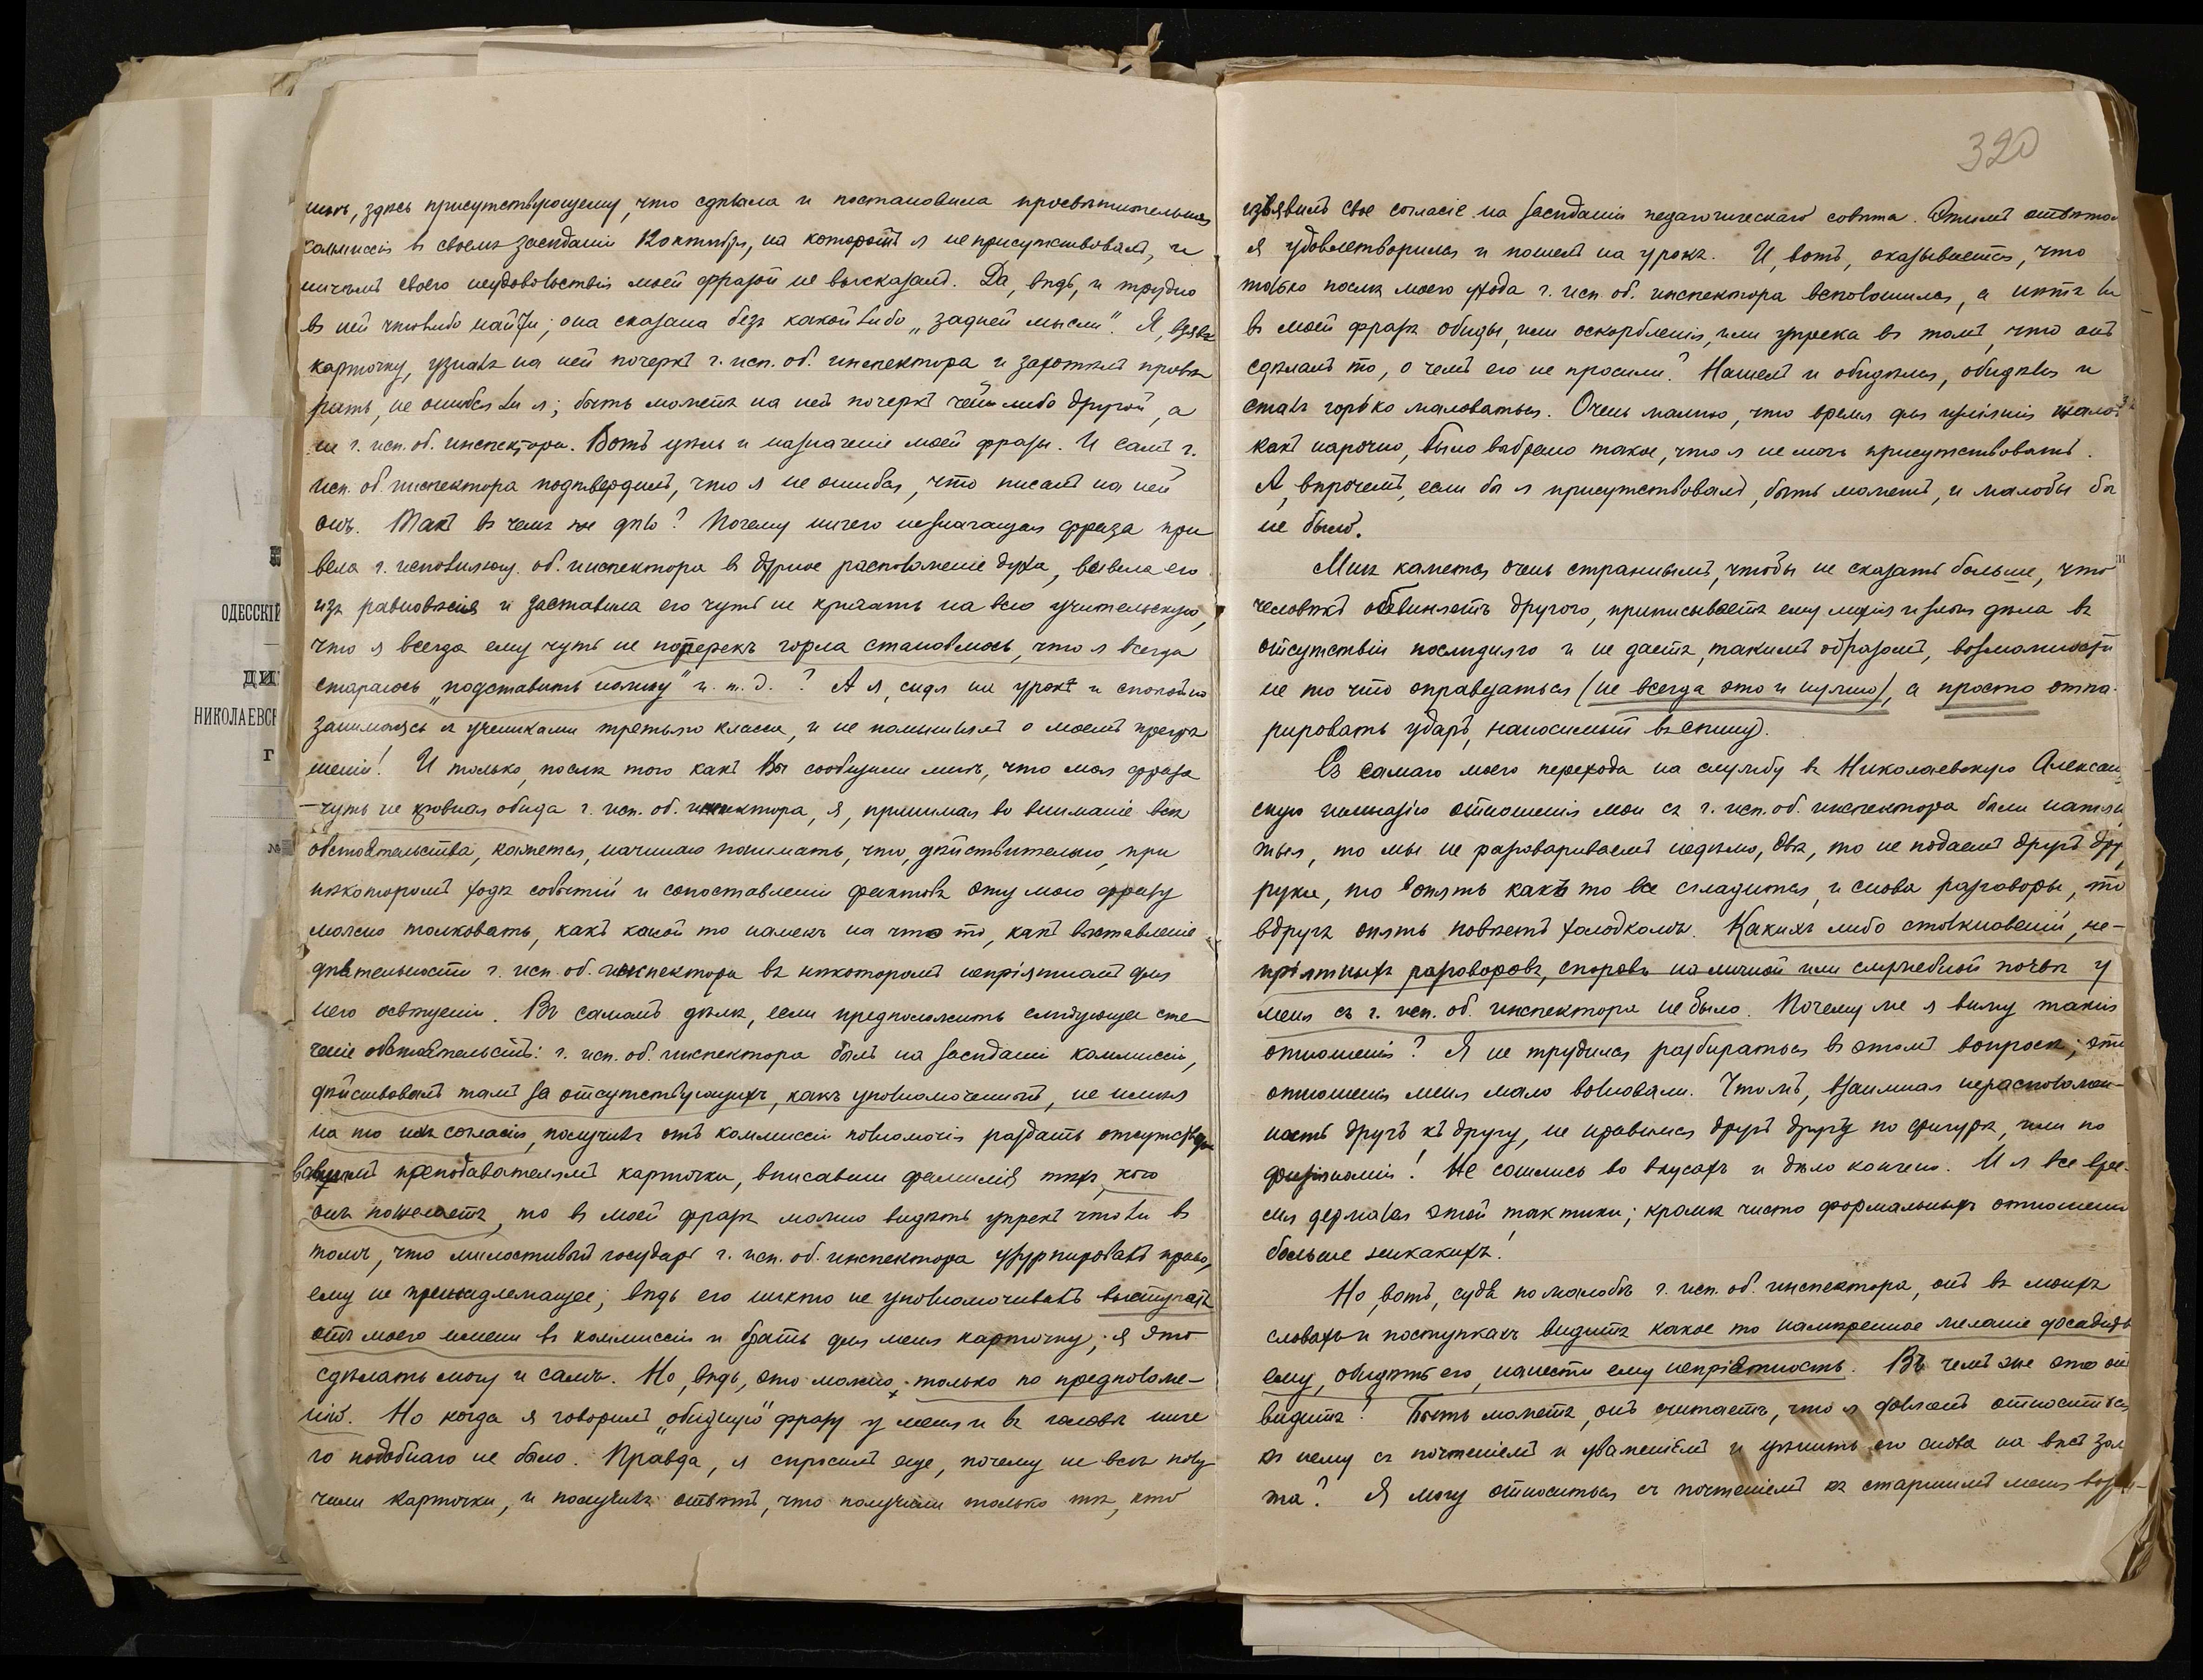 ОДЕССКІЙ
НИКОЛАЕВСК
мнѣ, здѣсь присутствующему, что сдѣлала и постановила просвѣтительная
коммиссія въ своемъ засѣданіи 12 октября, на которомъ я не присутствовалъ, и
ничѣмъ своего неудовольствія моей фразой не высказалъ. Да, вѣдь, и трудно
въ ней чтолибо найти; она сказана безъ какой либо „задней мысли“. Я, взявъ
карточку, узналъ на ней почеркъ г. исп. об. инспектора и захотѣлъ провѣ
рить, не ошибся ли я; быть можетъ на ней почеркъ чей либо другой, а
не г. исп. об. инспектора. Вотъ цѣль и назначеніе моей фразы. И самъ г.
исп. об. инспектора подтвердилъ, что я не ошибся, что писалъ на ней
онъ. Такъ въ чемъ же дѣло? Почему ничего незначащая фраза при
вела г. исполняющ. об. инспектора въ дурное расположеніе духа, вывела его
изъ равновѣсія и заставила его чуть не кричать на всю учительскую,
что я всегда ему чуть не поперекъ горла становлюсь, что я всегда
стараюсь „подставить ножку“ и. т. д.? А я, сидя на урокѣ и спокойно
занимаясь съ учениками третьяго класса, и не помышлялъ о моемъ прегрѣ
шеніи! И только, послѣ того какъ Вы сообщили мнѣ, что моя фраза
чуть не кровная обида г. исп. об. инспектора, я, принимая во вниманіе всѣ
обстоятельства, кажется, начинаю понимать, что, дѣйствительно, при
нѣкоторомъ ходѣ событій и сопоставленіи фактовъ эту мою фразу
можно толковать, какъ какой то намекъ на что то, какъ выставленіе
дѣятельности г. исп. об. инспектора въ нѣкоторомъ непріятномъ для
него освѣщеніи. Въ самомъ дѣлѣ, если предположить слѣдующее сте-
ченіе обстоятельствъ: г. исп. об. инспектора былъ на засѣданіи коммиссіи,
дѣйствовалъ тамъ за отсутствующихъ, какъ уполномоченный, не имѣя
на то ихъ согласія, получилъ отъ коммиссіи полномочія раздать отсутство
вавшимъ преподавателямъ карточки, вписавши фамиліи тѣхъ, кого
онъ пожелаетъ, то въ моей фразѣ можно видѣть упрекъ что ли въ
томъ, что милостивый государь г. исп. об. инспектора узурпировалъ право,
ему не принадлежащее; вѣдь его никто не уполномочивалъ выступать
отъ моего имени въ коммиссіи и брать для меня карточку; я это
сдѣлать могу и самъ. Но, вѣдь, это можно только по предположе-
нію. Но когда я говорилъ „обидную“ фразу у меня и въ головѣ ниче
го подобнаго не было. Правда, я спросилъ еще, почему не всѣ полу-
чили карточки, и получилъ отвѣтъ, что получили только тѣ, кто
320
изъявилъ свое согласіе на засѣданіи педагогическаго совѣта. Этимъ отвѣтомъ
я удовлетворился и пошелъ на урокъ. И, вотъ, оказывается, что
только послѣ моего ухода г. исп. об. инспектора всполошился, а нѣтъ ли
въ моей фразѣ обиды, или оскорбленія, или упрека въ томъ, что онъ
сдѣлалъ то, о чемъ его не просили? Нашелъ и обидѣлся, обидѣлся и
сталъ горько жаловаться. Очень жалко, что время для изліянія жалоб
какъ нарочно, было выбрано такое, что я не могъ присутствовать.
А, впрочемъ, если бы я присутствовалъ, быть можетъ, и жалобы бы
не было.
Мнѣ кажется очень страннымъ, чтобы не сказать больше, что
человѣкъ обвиняетъ другого, приписываетъ ему мнѣнія и дѣла въ
отсутствіи послѣдняго и не даетъ, такимъ образомъ, возможности
не то что оправдаться (не всегда это и нужно), а просто отпа-
рировать ударъ, наносимый въ спину.
Съ самаго моего перехода на службу въ Николаевскую Алексан
скую гимназію отношенія мои съ г. исп. об. инспектора были натяну
тыя, то мы не разговариваемъ недѣлю, двѣ, то не подаемъ другъ дру
руки, то опять какъ то все сгладится, и снова разговоры, то
вдругъ опять повѣетъ холодкомъ. Какихъ либо столкновеній, не-
пріятныхъ разговоровъ, споровъ на личной или служебной почвѣ у
меня съ г. исп. об. инспектора не было. Почему же я вижу такія
отношенія? Я не трудился разбираться въ этомъ вопросѣ; эти
отношенія меня мало волновали. Чтожъ, взаимная нерасположен-
ность другъ къ другу, не нравимся другъ другу по фигурѣ, или по
физіономіи! Не сошлись во вкусахъ и дѣло кончено. И я все вре-
мя держался этой тактики; кромѣ чисто формальныхъ отношеній
больше никакихъ!
Но, вотъ, судя по жалобѣ г. исп. об. инспектора, онъ въ моихъ
словахъ и поступкахъ видитъ какое то намѣренное желаніе досадить
ему, обидѣть его, нанести ему непріятность. Въ чемъ же это онъ
видитъ! Быть можетъ, онъ считаетъ, что я долженъ относиться
къ нему съ почтеніемъ и уваженіемъ и цѣнить его слова на вѣсъ зол
та? Я могу относиться съ почтеніемъ къ старшимъ меня возра-